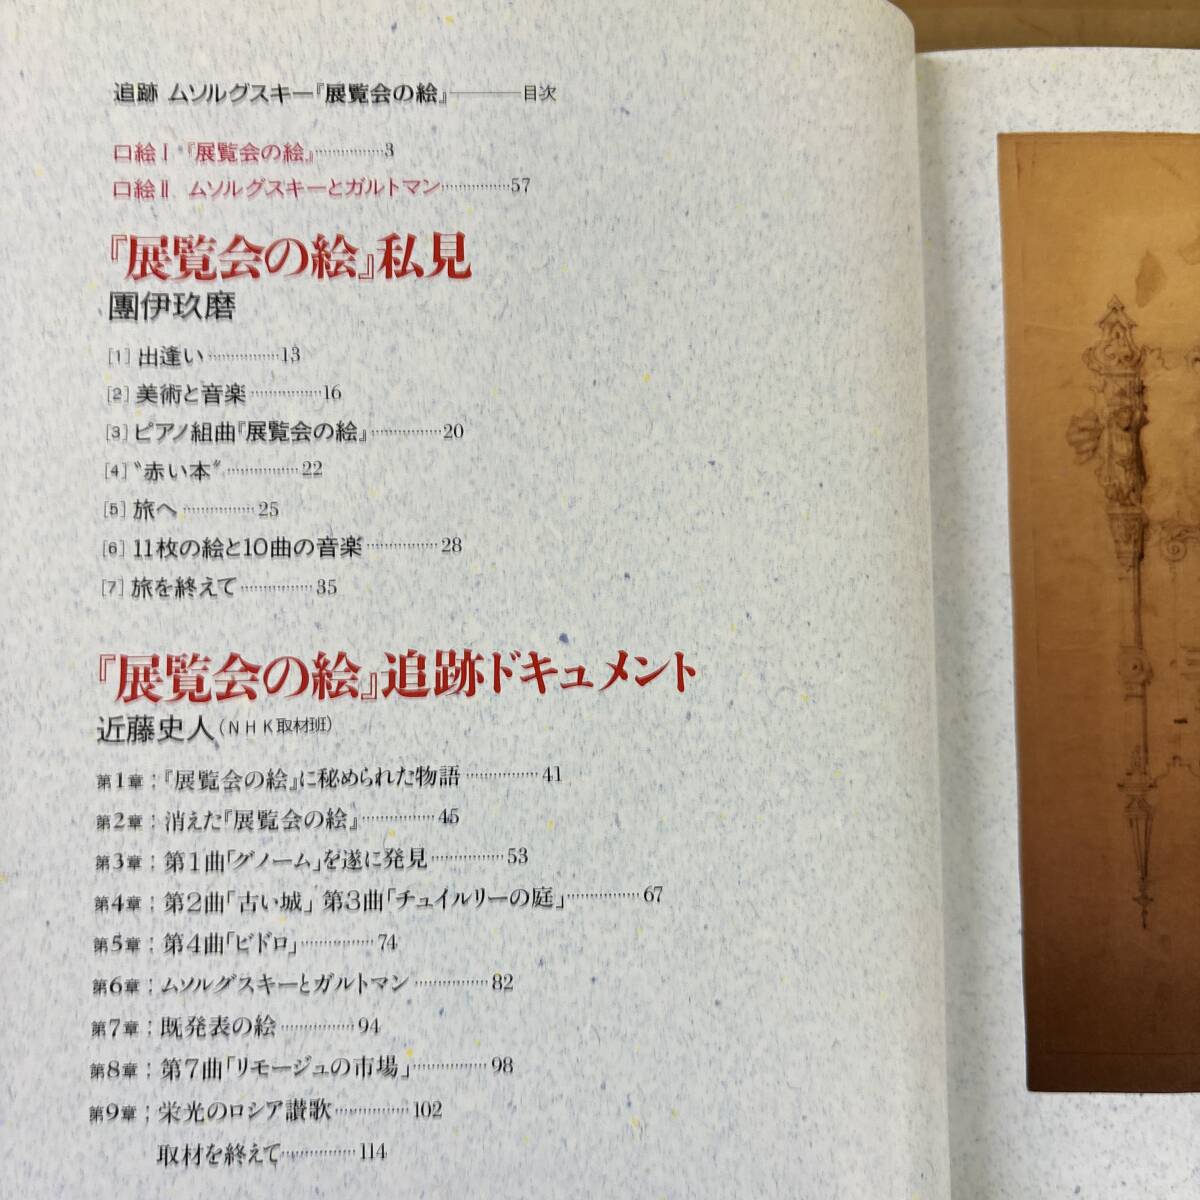 追跡 ムソルグスキー『展覧会の絵』————目次
口絵Ⅰ 『展覧会の絵』……………3
口絵Ⅱ ムソルグスキーとガルトマン……………57
『展覧会の絵』私見
團伊玖磨
[1] 出逢い……………13
[2] 美術と音楽……………16
[3] ピアノ組曲『展覧会の絵』……………20
[4] 〝赤い本〟……………22
[5] 旅へ……………25
[6] 11枚の絵と10曲の音楽……………28
[7] 旅を終えて……………35
『展覧会の絵』追跡ドキュメント
近藤史人(NHK取材班)
第1章:『展覧会の絵』に秘められた物語……………41
第2章:消えた『展覧会の絵』……………45
第3章:第1曲「グノーム」を遂に発見……………53
第4章:第2曲「古い城」 第3曲「チュイルリーの庭」……………67
第5章:第4曲「ビドロ」……………74
第6章:ムソルグスキーとガルトマン……………82
第7章:既発表の絵……………94
第8章:第7曲「リモージュの市場」……………98
第9章:栄光のロシア讃歌……………102
取材を終えて……………114